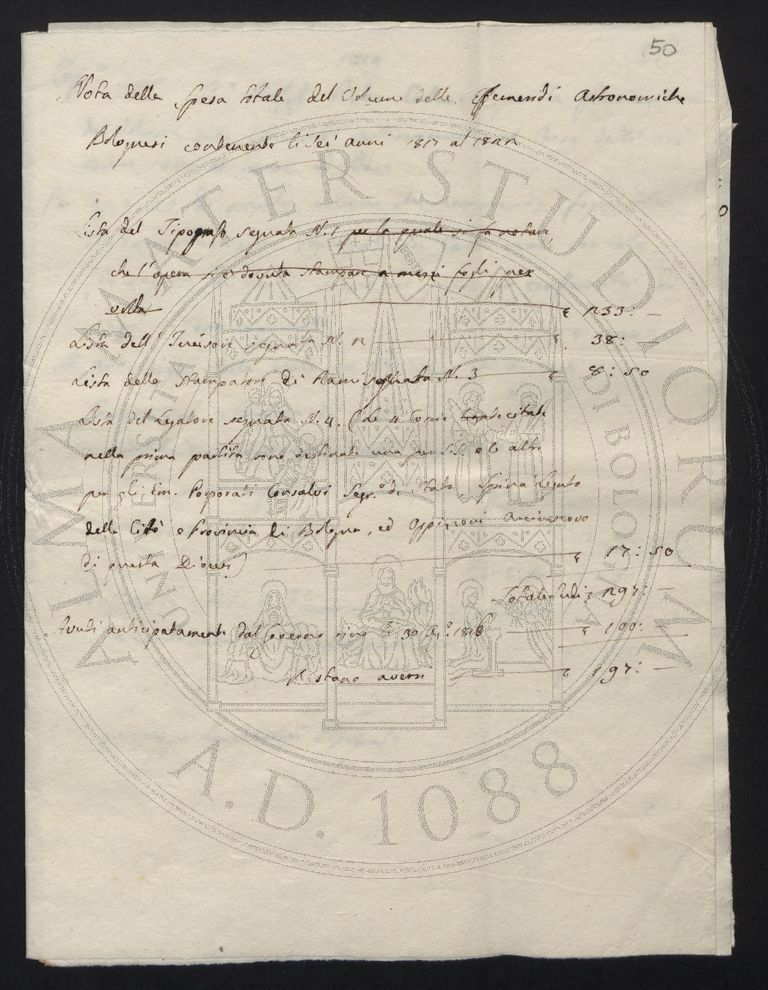 50
Nota della Spesa totale del Volume delle Effemeridi Astronomiche
Bolognesi contenente li sei anni 1817 al 1822
Lista del Tipografo segnata N. 1 per la quale si fa notare
che l'opera si è dovuta stampare a mezzi fogli per
volta 233: —
Lista dell'Incisore segnata N. 2 38: —
Lista dello Stampatore di Rami segnata N. 3 8: 50
Lista del Legatore segnata N. 4. Che 4 Copie citate
nella prima partita sono destinate una per S.S. e le altre
per gli Em. Porporati Consalvi Segr.o di Stato Spina Legato
della Città e Provincia di Bologna, ed Oppizzoni Arcivescovo
di questa Diocesi 17: 50
Totale Scudi 297: —
Avuti anticipatamente dal Governo sino li 30 Ag.o 1816 100: —
Restano aversi 197: —
ALMA MATER STUDIORUM
UNIVERSITÀ DI BOLOGNA
A.D. 1088